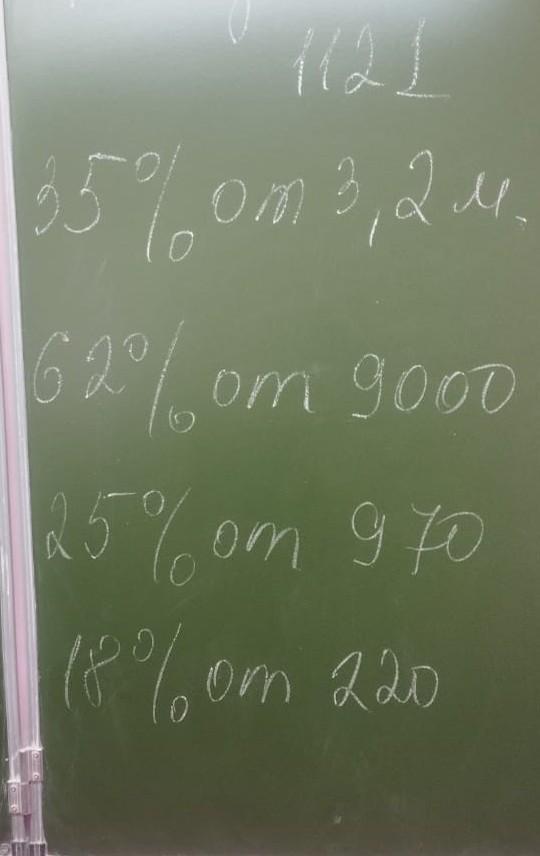 1121
35% от 3,2 м.
62% от 9000
25% от 970
18% от 220